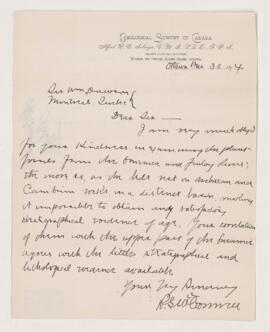 Geological Survey of Canada
Ottawa Mar 30 1894
Sir Wm Dawson
Montreal
Dear Sir
I am very much obliged
for your kindness in examining the plant
fossils from the Omineca and Finlay rivers
the more so, as the beds rest on Archaean and
Cambrian rocks in a distinct basin, making
it impossible to obtain any satisfactory
stratigraphical evidence of age. Your correlation
of them with the upper part of the Laramie
agrees with the little stratigraphical and
lithological evidence available
Yours Very Sincerely
R.G. McConnell